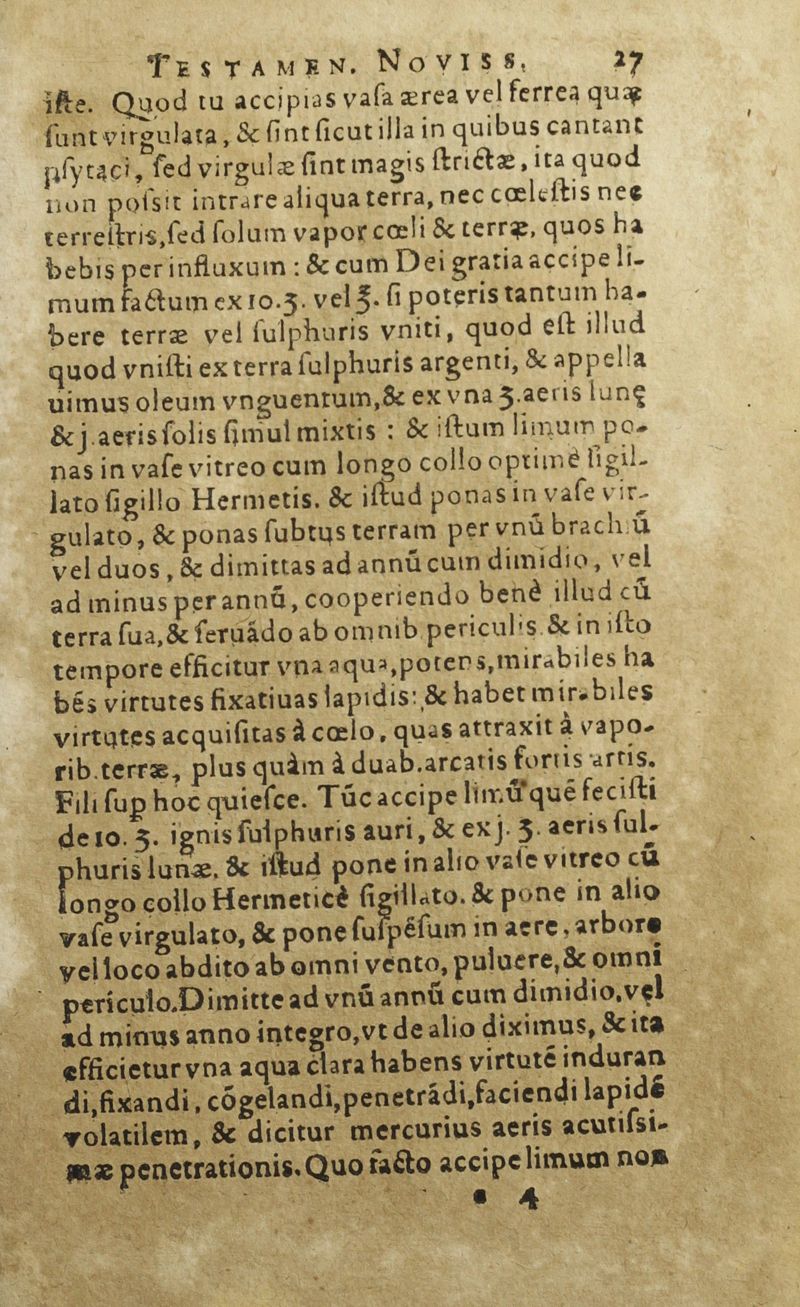 TESTAMEN. NOVISS. 27
iſte. Quod tu accipias vaſa ærea vel ferrea quæ
ſunt virgulata, & ſint ſicut illa in quibus cantant
pſytaci, ſed virgulæ ſint magis ſtrictæ, ita quod
non poſsit intrare aliqua terra, nec cœleſtis nec
terreſtris, ſed ſolum vapor cœli & terræ, quos ha
bebis per influxum : & cum Dei gratia accipe li-
mum factum ex 10.ʒ. vel ʒ. ſi poteris tantum ha-
bere terræ vel ſulphuris vniti, quod eſt illud
quod vniſti ex terra ſulphuris argenti, & appella
uimus oleum vnguentum,& ex vna ʒ.aeris lunę
& j.aeris ſolis ſimul mixtis : & iſtum limum po-
nas in vaſe vitreo cum longo collo optimè ſigil-
lato ſigillo Hermetis. & iſtud ponas in vaſe vir-
gulato, & ponas ſubtus terram per vnū brachiū
vel duos, & dimittas ad annū cum dimidio, vel
ad minus per annū, cooperiendo benè illud cū
terra ſua,& ſeruādo ab omnib periculis.& in iſto
tempore efficitur vna aqua,potens,mirabiles ha
bēs virtutes fixatiuas lapidis: & habet mirabiles
virtutes acquiſitas à cœlo, quas attraxit à vapo-
rib.terræ, plus quàm à duab.arcatis fortis artis.
Fili ſup hoc quieſce. Tūc accipe limū quē feciſti
de 10. ʒ. ignis ſulphuris auri, & ex j. ʒ. aeris ſul-
phuris lunæ. & iſtud pone in alio vaſe vitreo cū
longo collo Hermeticè ſigillato. & pone in alio
vaſe virgulato, & pone ſuſpēſum in aere, arbore
vel loco abdito ab omni vento, puluere,& omni
periculo.Dimitte ad vnū annū cum dimidio,vel
ad minus anno integro,vt de alio diximus, & ita
efficietur vna aqua clara habens virtutē induran
di,fixandi, cōgelandi,penetrādi,faciendi lapidē
volatilem, & dicitur mercurius aeris acutiſsi-
mæ penetrationis. Quo facto accipe limum non
4